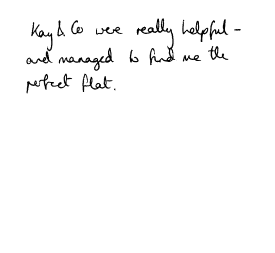 Kay & Co were really helpful -
and managed to find me the
perfect flat.